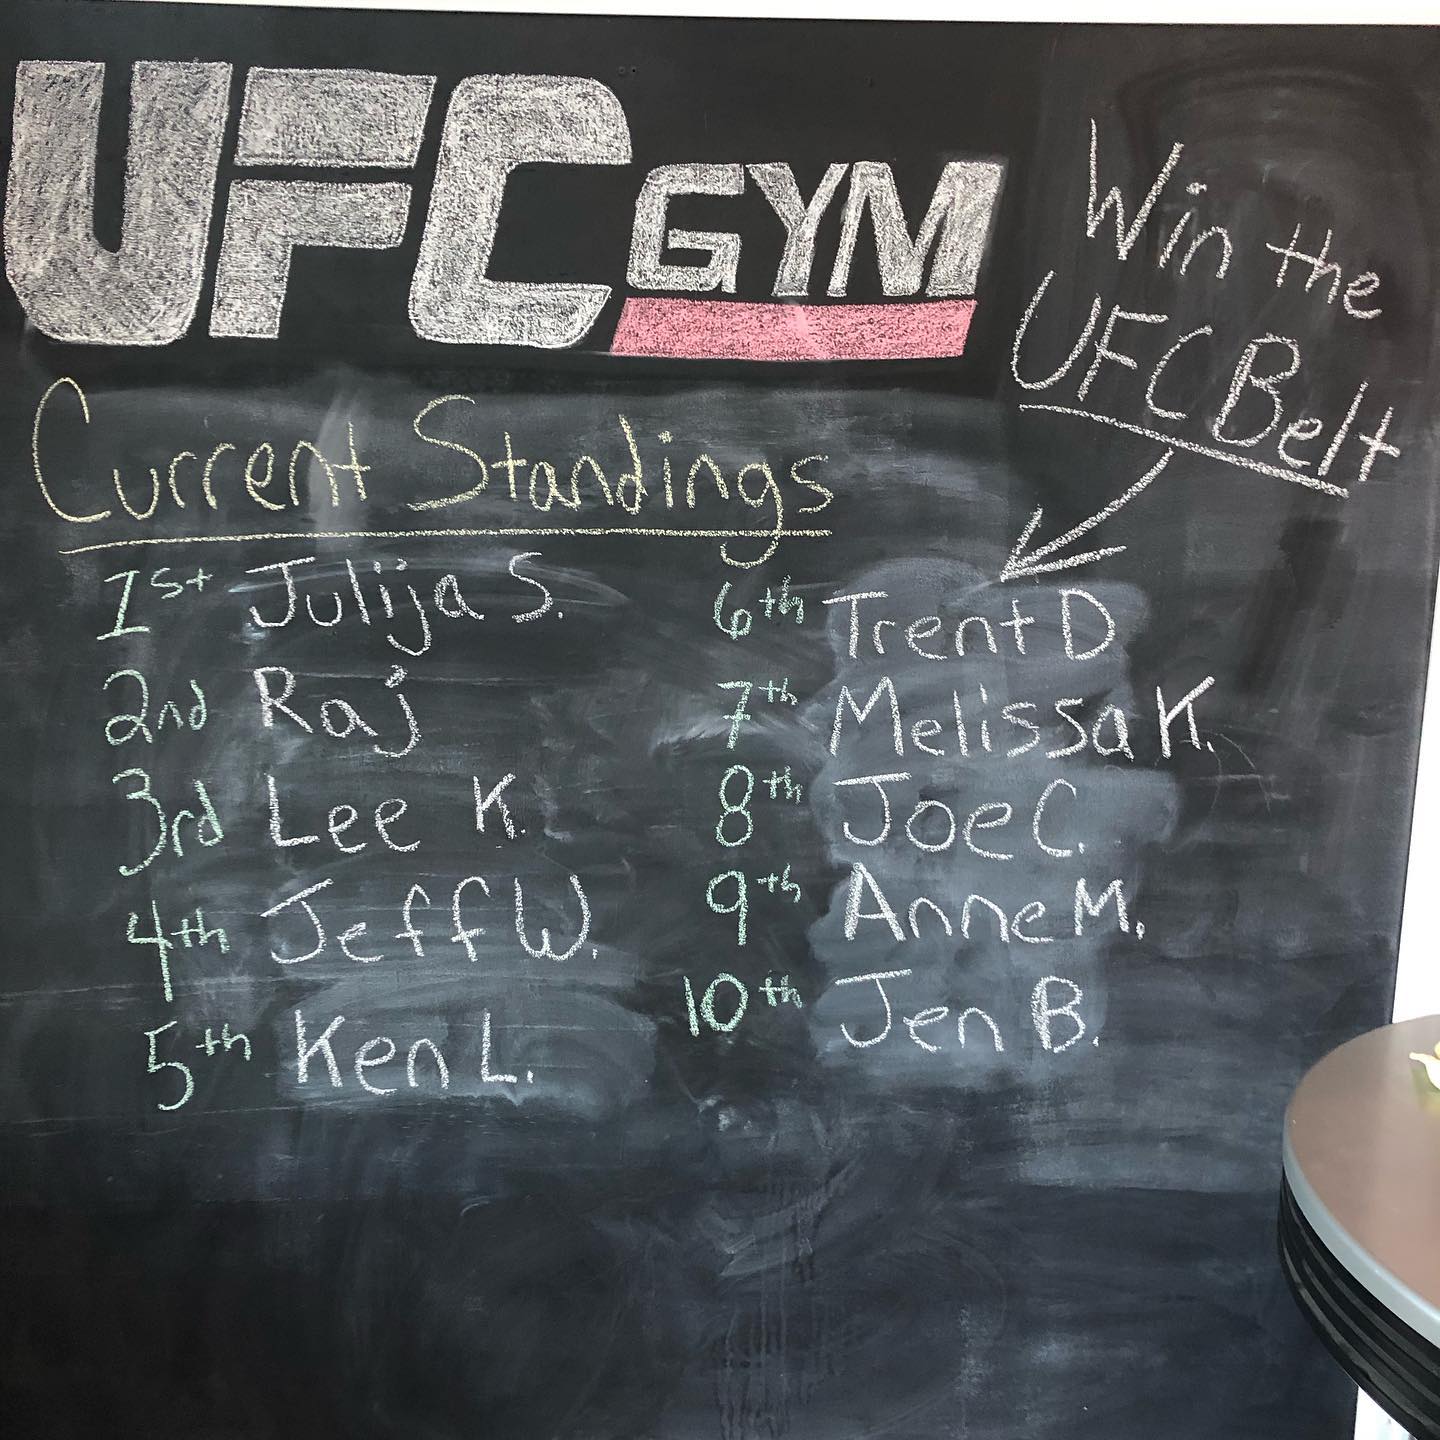 UFC GYM
Win the
UFC Belt
Current Standings
1st Julija S.
2nd Raj
3rd Lee K.
4th Jeff W.
5th Ken L.
6th Trent D
7th Melissa K.
8th Joe C.
9th Anne M.
10th Jen B.